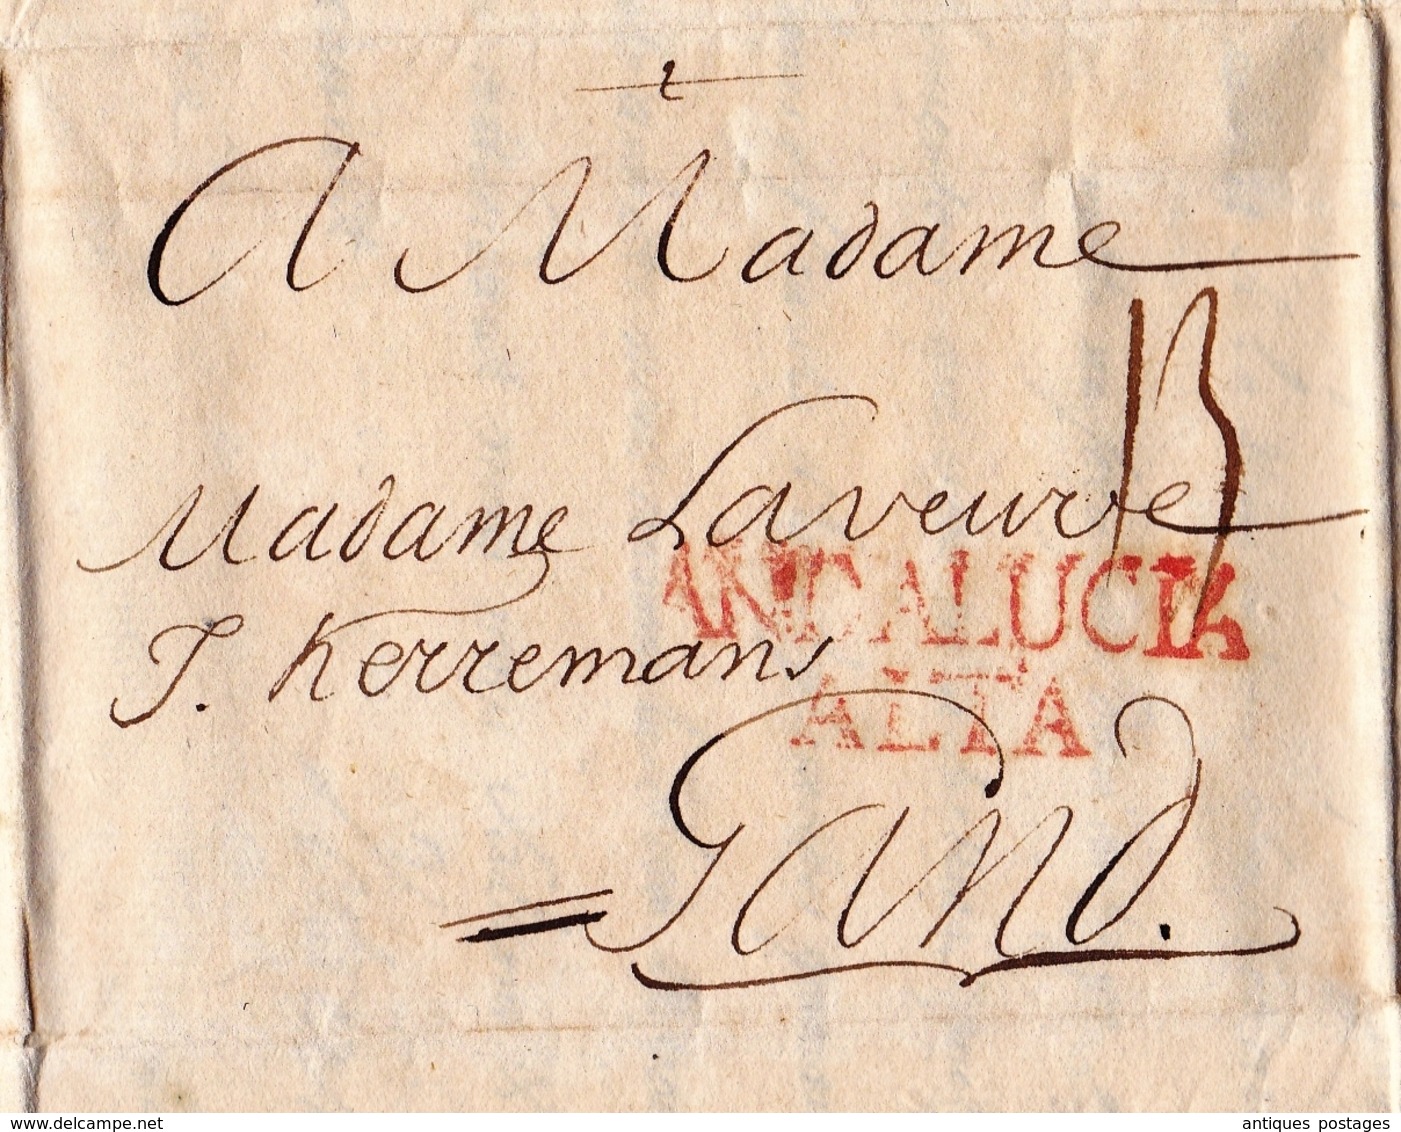 A Madame
Madame Laveuve
J. Kerremans
ANDALUCIA
ALTA
13
Gand.
www.delcampe.net
antiques postages